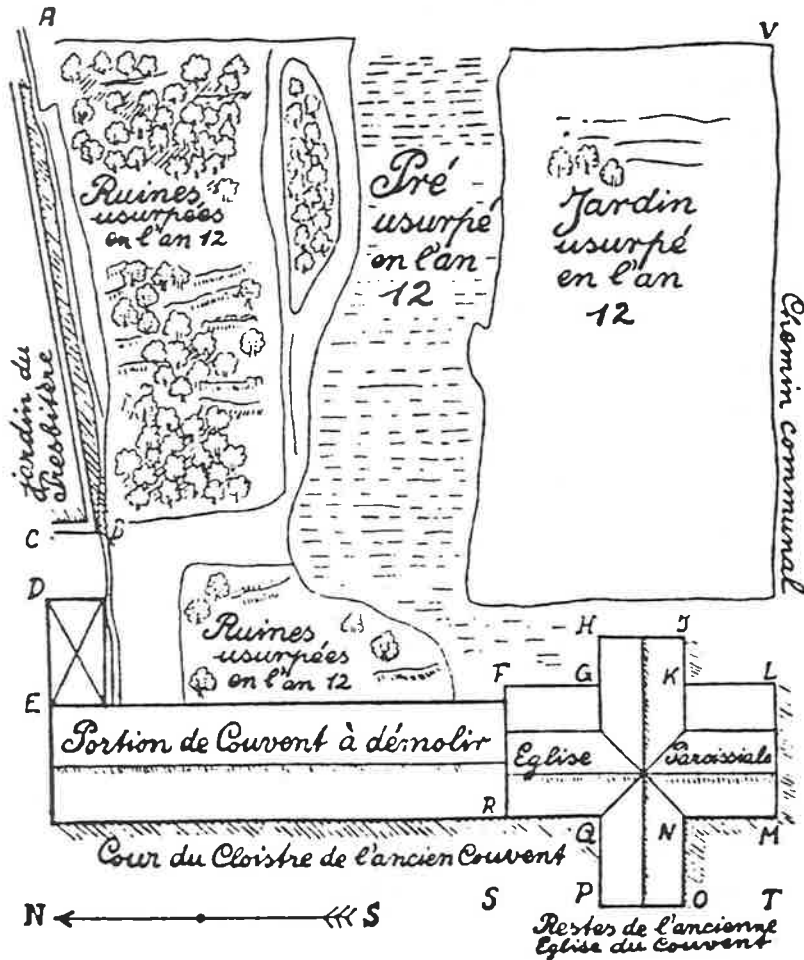 A
V
Ruines
usurpées
en l'an 12
Pré
usurpé
en l'an
12
Jardin
usurpé
en l'an
12
Chemin communal
jardin du
Presbitère
C
B
D
Ruines
usurpées
en l'an 12
H
J
F
G
K
L
E
Portion de Couvent à démolir
Eglise
Paroissiale
R
Q
N
M
Cour du Cloistre de l'ancien Couvent
N
S
S
P
O
T
Restes de l'ancienne
Eglise du Couvent